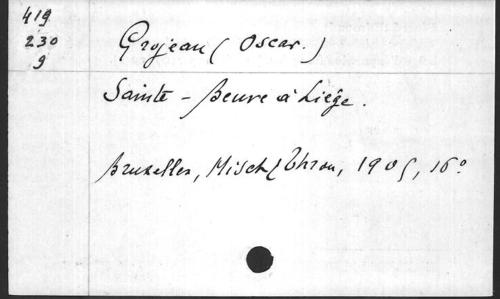 419
230
9
Grojean (Oscar.)
Sainte-Beuve à Liége.
Bruxelles, Misch & Thron, 1905, 16°